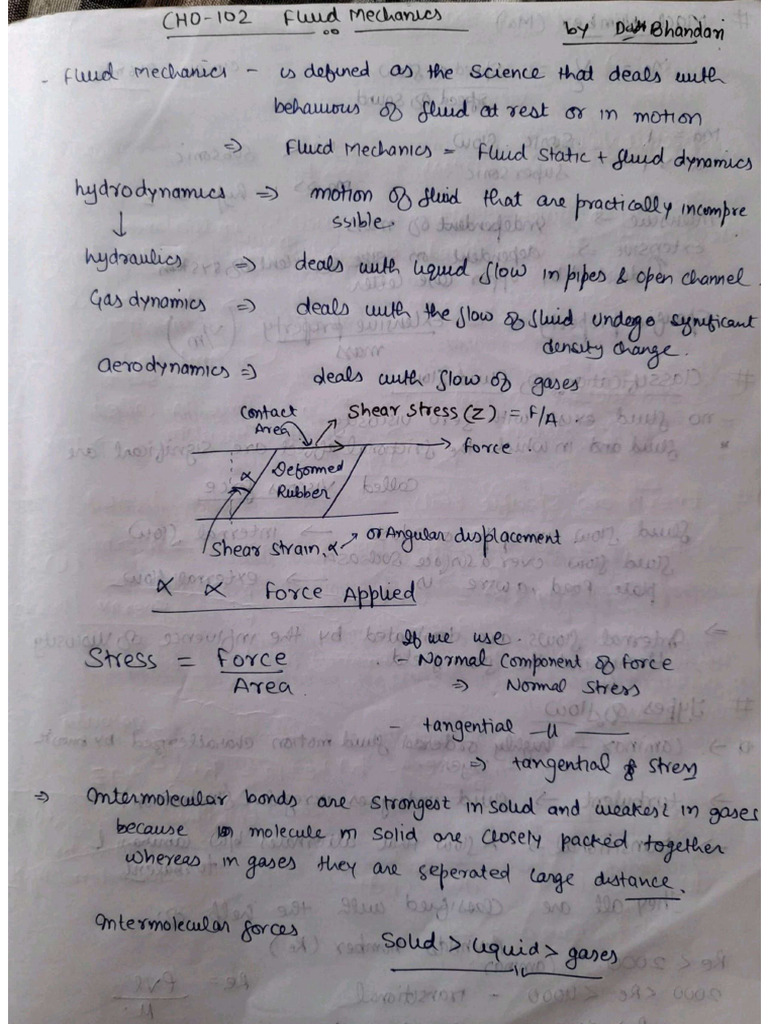 CHO-102 Fluid Mechanics
by Bhandari
- Fluid mechanics - is defined as the science that deals with
behaviours of fluid at rest or in motion
⇒ Fluid Mechanics = Fluid Static + fluid dynamics
hydrodynamics ⇒ motion of fluid that are practically incompre
ssible.
↓
hydraulics ⇒ deals with liquid flow in pipes & open channel.
Gas dynamics ⇒ deals with the flow of fluid undego significant
density change.
aerodynamics ⇒ deals with flow of gases
Contact
Area
Shear Stress (Z) := F/A
→ force.
α
Deformed
Rubber
Shear strain, α → or Angular displacement
α ∝ Force Applied
If we use.
Stress = Force
Area
- Normal Component of force
⇒ Normal Stress
- tangential -u-
⇒ tangential Stress
⇒ Intermolecular bonds are strongest in solid and weakest in gases
because molecule in solid are closely packed together
whereas in gases they are seperated large distance.
Intermolecular forces
Solid > liquid > gases